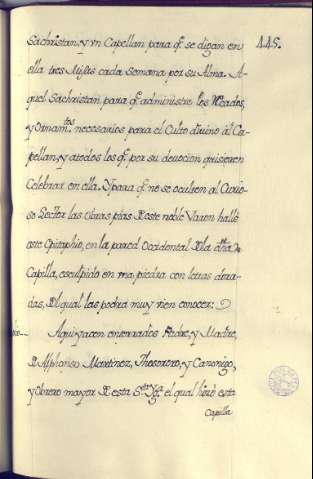 445.
Sachristan, y vn Capellan para q̃. se digan en
ella tres Misas cada Semana por su Alma. A-
quel Sachristan para q̃. administre los Recados,
y Ornam.tos necesarios para el Culto divino al Ca-
pellan, y atodos los q̃. por su devocion quisieren
Celebrar en ella. Y para q̃. no se oculten al Curio-
so Lector las obras pias de este noble Varon hallé
este Epitaphio, en la pared Occidental de la dha
Capilla, esculpido en vna piedra con letras dora-
das, del qual las podrá muy vien conocer:
Aqui yacen enterrados Padre, y Madre,
D. Alphonso Martinez, Thesorero, y Canonigo,
y Obrero mayor de esta S.ta Yg.a el qual hizo esta
Capilla